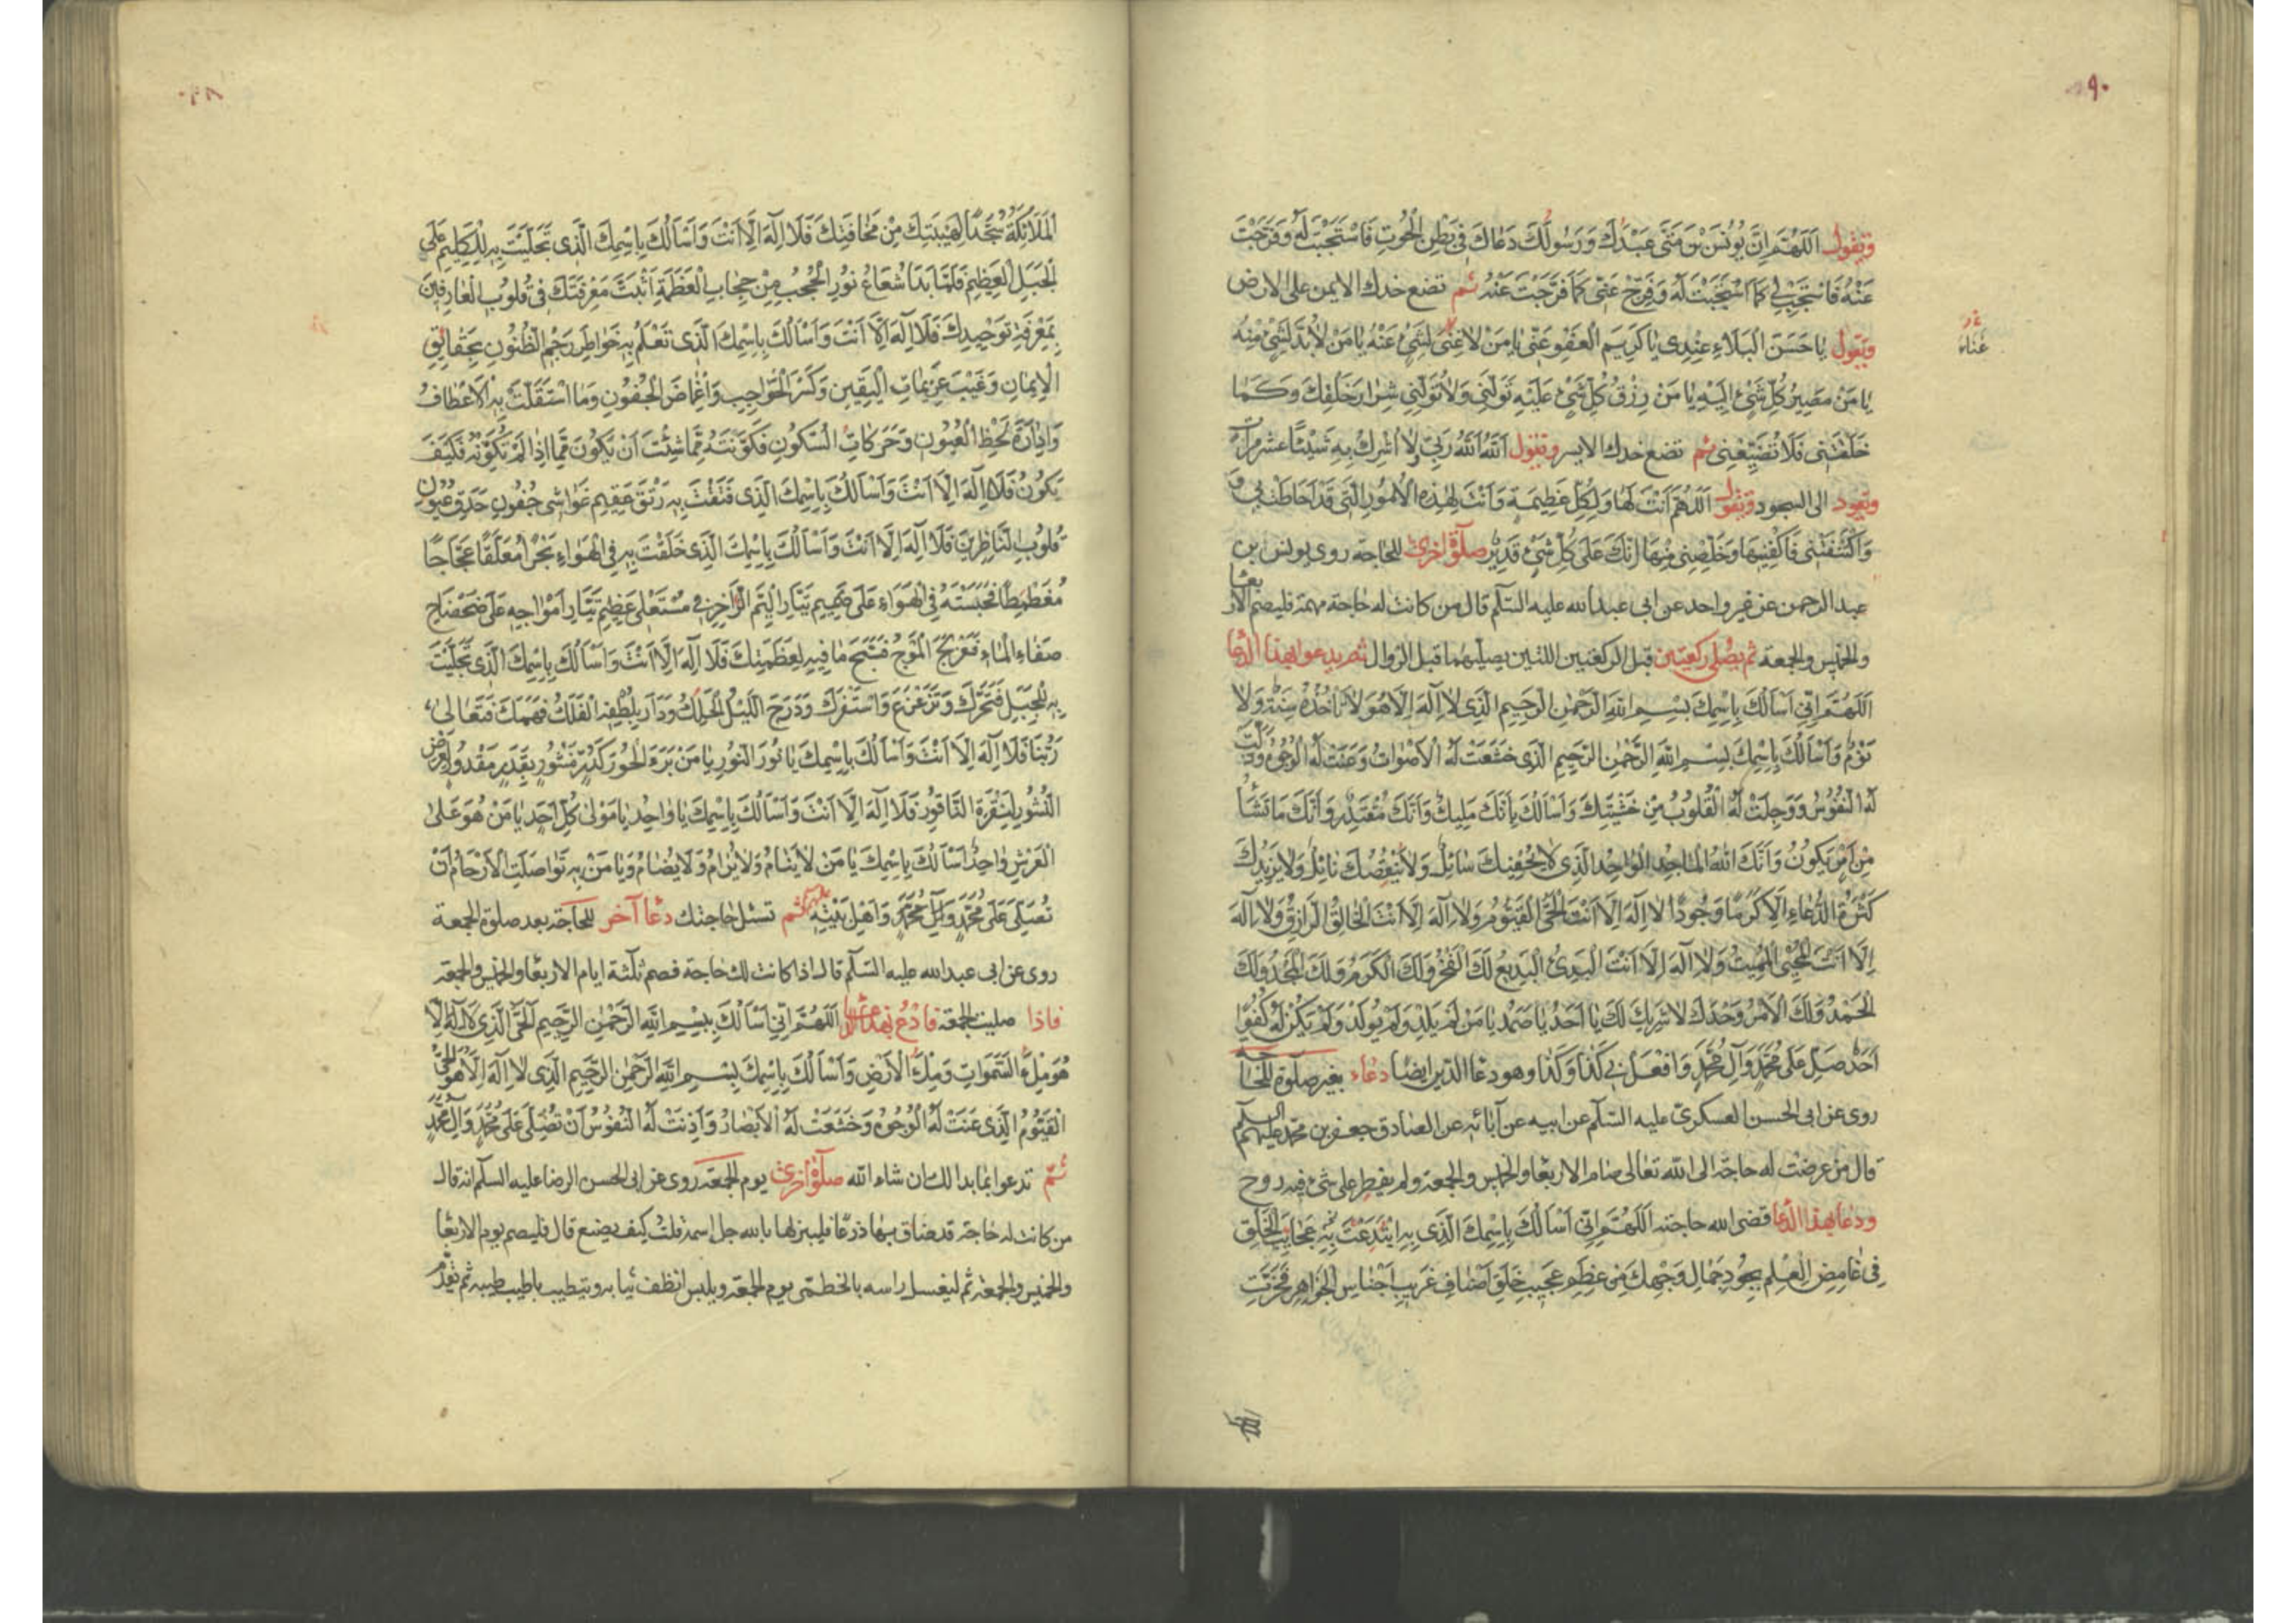 ٩٠
وتقول اَللّٰهُمَّ اِنَّ يُونُسَ بْنَ مَتّٰى عَبْدُكَ وَرَسُولُكَ دَعَاكَ فِي بَطْنِ الْحُوتِ فَاسْتَجَبْتَ لَهُ وَفَرَّجْتَ
عَنْهُ فَاسْتَجِبْ لِي كَمَا اسْتَجَبْتَ لَهُ وَفَرِّجْ عَنِّي كَمَا فَرَّجْتَ عَنْهُ ثم تضع خدك الايمن على الارض
وتقول يَا حَسَنَ الْبَلَاءِ عِنْدِي يَا كَرِيمَ الْعَفْوِ عَنِّي يَا مَنْ لَا غِنَى لِشَيْءٍ عَنْهُ يَا مَنْ لَابُدَّ لِشَيْءٍ مِنْهُ
غناء
يَا مَنْ مَصِيرُ كُلِّ شَيْءٍ اِلَيْهِ يَا مَنْ رِزْقُ كُلِّ شَيْءٍ عَلَيْهِ تَوَلَّنِي وَلَا تُوَلِّنِي شِرَارَ خَلْقِكَ وَكَمَا
خَلَقْتَنِي فَلَا تُضَيِّعْنِي ثم تضع خدك الايسر وتقول اَللّٰهُ اَللّٰهُ رَبِّي لَا اُشْرِكُ بِهِ شَيْئًا عشر مرات
وتعود الى السجود وتقول اَللّٰهُمَّ اَنْتَ لَهَا وَلِكُلِّ عَظِيمَةٍ وَاَنْتَ لِهٰذِهِ الْاُمُورِ الَّتِي قَدْ اَحَاطَتْ بِي
وَاكْتَنَفَتْنِي فَاكْفِنِيهَا وَخَلِّصْنِي مِنْهَا اِنَّكَ عَلَى كُلِّ شَيْءٍ قَدِيرٌ صلوة اخرى للحاجة روى يونس بن
عبد الرحمن عن غير واحد عن ابى عبد الله عليه السلم قال من كانت له حاجة مهمة فليصم الاربعا
والخميس والجمعة ثم يصلى ركعتين قبل الركعتين اللتين يصليهما قبل الزوال ثم يدعو بهذا الدعا
اَللّٰهُمَّ اِنِّي اَسْاَلُكَ بِاسْمِكَ بِسْمِ اللّٰهِ الرَّحْمٰنِ الرَّحِيمِ الَّذِي لَا اِلٰهَ اِلَّا هُوَ لَا تَاْخُذُهُ سِنَةٌ وَلَا
نَوْمٌ وَاَسْاَلُكَ بِاسْمِكَ بِسْمِ اللّٰهِ الرَّحْمٰنِ الرَّحِيمِ الَّذِي خَشَعَتْ لَهُ الْاَصْوَاتُ وَعَنَتْ لَهُ الْوُجُوهُ وَذَلَّتْ
لَهُ النُّفُوسُ وَوَجِلَتْ لَهُ الْقُلُوبُ مِنْ خَشْيَتِكَ وَاَسْاَلُكَ بِاَنَّكَ مَلِيكٌ وَاَنَّكَ مُقْتَدِرٌ وَاَنَّكَ مَا تَشَاءُ
مِنْ اَمْرٍ يَكُونُ وَاَنَّكَ اللّٰهُ الْمَاجِدُ الْوَاحِدُ الَّذِي لَا يُحْفِيكَ سَائِلٌ وَلَا يَنْقُصُكَ نَائِلٌ وَلَا يَزِيدُكَ
كَثْرَةُ الدُّعَاءِ اِلَّا كَرَمًا وَجُودًا لَا اِلٰهَ اِلَّا اَنْتَ الْحَيُّ الْقَيُّومُ وَلَا اِلٰهَ اِلَّا اَنْتَ الْخَالِقُ الرَّازِقُ وَلَا اِلٰهَ
اِلَّا اَنْتَ الْمُحْيِي الْمُمِيتُ وَلَا اِلٰهَ اِلَّا اَنْتَ الْبَدِيءُ الْبَدِيعُ لَكَ الْفَخْرُ وَلَكَ الْكَرَمُ وَلَكَ الْمَجْدُ وَلَكَ
الْحَمْدُ وَلَكَ الْاَمْرُ وَحْدَكَ لَا شَرِيكَ لَكَ يَا اَحَدُ يَا صَمَدُ يَا مَنْ لَمْ يَلِدْ وَلَمْ يُولَدْ وَلَمْ يَكُنْ لَهُ كُفُوًا
اَحَدٌ صَلِّ عَلَى مُحَمَّدٍ وَآلِ مُحَمَّدٍ وَافْعَلْ بِي كَذَا وَكَذَا وهو دعا الدين ايضا دعاء بغير صلوة للحاجة
روى عن ابى الحسن العسكرى عليه السلم عن ابيه عن آبائه عن الصادق جعفر بن محمد عليهم السلم
قال من عرضت له حاجة الى الله تعالى صام الاربعا والخميس والجمعة ولم يفطر على شئ فيه روح
ودعا بهذا الدعا قضى الله حاجته اَللّٰهُمَّ اِنِّي اَسْاَلُكَ بِاسْمِكَ الَّذِي بِهِ ابْتَدَعْتَ عَجَائِبَ الْخَلْقِ
فِي غَامِضِ الْعِلْمِ بِجُودِ جَمَالِ وَجْهِكَ مِنْ عَظِيمِ عَجِيبِ خَلْقِ اَصْنَافِ غَرِيبِ اَجْنَاسِ الْجَوَاهِرِ فَخَرَّتِ
الْمَلَائِكَةُ سُجَّدًا لِهَيْبَتِكَ مِنْ مَخَافَتِكَ فَلَا اِلٰهَ اِلَّا اَنْتَ وَاَسْاَلُكَ بِاسْمِكَ الَّذِي تَجَلَّيْتَ بِهِ لِلْكَلِيمِ عَلَى
الْجَبَلِ الْعَظِيمِ فَلَمَّا بَدَا شُعَاعُ نُورِ الْحُجُبِ مِنْ حِجَابِ الْعَظَمَةِ اَثْبَتَّ مَعْرِفَتَكَ فِي قُلُوبِ الْعَارِفِينَ
بِمَعْرِفَةِ تَوْحِيدِكَ فَلَا اِلٰهَ اِلَّا اَنْتَ وَاَسْاَلُكَ بِاسْمِكَ الَّذِي تَعْلَمُ بِهِ خَوَاطِرَ رَجْمِ الظُّنُونِ بِحَقَائِقِ
الْاِيمَانِ وَغَيْبَ عَزِيمَاتِ الْيَقِينِ وَكَسْرَ الْحَوَاجِبِ وَاِغْمَاضَ الْجُفُونِ وَمَا اسْتَقَلَّتْ بِهِ الْاَعْطَافُ
وَاِدَارَةَ لَحْظِ الْعُيُونِ وَحَرَكَاتِ السُّكُونِ فَكَوَّنْتَهُ مِمَّا شِئْتَ اَنْ يَكُونَ مِمَّا اِذَا لَمْ تُكَوِّنْهُ فَكَيْفَ
يَكُونُ فَلَا اِلٰهَ اِلَّا اَنْتَ وَاَسْاَلُكَ بِاسْمِكَ الَّذِي فَتَقْتَ بِهِ رَتْقَ عَقِيمِ غَوَاشِي جُفُونِ حَدَقِ عُيُونِ
قُلُوبِ النَّاظِرِينَ فَلَا اِلٰهَ اِلَّا اَنْتَ وَاَسْاَلُكَ بِاسْمِكَ الَّذِي خَلَقْتَ بِهِ فِي الْهَوَاءِ بَحْرًا مُعَلَّقًا عَجَّاجًا
مُغَطْمِطًا فَحَبَسْتَهُ فِي الْهَوَاءِ عَلَى صَمِيمِ تَيَّارِ الْيَمِّ الزَّاخِرِ فِي مُسْتَعْلَى عَظِيمِ تَيَّارِ اَمْوَاجِهِ عَلَى ضَحْضَاحِ
صَفَاءِ الْمَاءِ فَعَزْلَجَ الْمَوْجُ فَسَبَّحَ مَا فِيهِ لِعَظَمَتِكَ فَلَا اِلٰهَ اِلَّا اَنْتَ وَاَسْاَلُكَ بِاسْمِكَ الَّذِي تَجَلَّيْتَ
بِهِ لِلْجَبَلِ فَتَحَرَّكَ وَتَزَعْزَعَ وَاسْتَفْرَكَ وَدَرَجَ اللَّيْلُ الْحَلِكُ وَدَارَ بِلُطْفِهِ الْفَلَكُ فَهَمَكَ فَتَعَالَى
رَبُّنَا فَلَا اِلٰهَ اِلَّا اَنْتَ وَاَسْاَلُكَ بِاسْمِكَ يَا نُورَ النُّورِ يَا مَنْ بَرَءَ الْحُورَ كَدُرٍّ مَنْثُورٍ بِقَدَرٍ مَقْدُورٍ لِعَرْضِ
النُّشُورِ لِنَقْرَةِ النَّاقُورِ فَلَا اِلٰهَ اِلَّا اَنْتَ وَاَسْاَلُكَ بِاسْمِكَ يَا وَاحِدُ يَا مَوْلَى كُلِّ اَحَدٍ يَا مَنْ هُوَ عَلَى
الْعَرْشِ وَاحِدٌ اَسْاَلُكَ بِاسْمِكَ يَا مَنْ لَا يَنَامُ وَلَا يُرَامُ وَلَا يُضَامُ وَيَا مَنْ بِهِ تَوَاصَلَتِ الْاَرْحَامُ اَنْ
تُصَلِّيَ عَلَى مُحَمَّدٍ وَآلِ مُحَمَّدٍ وَاَهْلِ بَيْتِهِ ثم تسئل حاجتك دعا آخر للحاجة بعد صلوة الجمعة
روى عن ابى عبد الله عليه السلم قال اذا كانت لك حاجة فصم ثلثة ايام الاربعا والخميس والجمعة
فاذا صليت الجمعة فادع بهذا الدعا اَللّٰهُمَّ اِنِّي اَسْاَلُكَ بِبِسْمِ اللّٰهِ الرَّحْمٰنِ الرَّحِيمِ الْحَيِّ الَّذِي لَا اِلٰهَ اِلَّا
هُوَ مِلْءَ السَّمٰوَاتِ وَمِلْءَ الْاَرْضِ وَاَسْاَلُكَ بِاسْمِكَ بِسْمِ اللّٰهِ الرَّحْمٰنِ الرَّحِيمِ الَّذِي لَا اِلٰهَ اِلَّا هُوَ الْحَيُّ
الْقَيُّومُ الَّذِي عَنَتْ لَهُ الْوُجُوهُ وَخَشَعَتْ لَهُ الْاَبْصَارُ وَاَذِنَتْ لَهُ النُّفُوسُ اَنْ تُصَلِّيَ عَلَى مُحَمَّدٍ وَآلِ مُحَمَّدٍ
ثم تدعوا بما بدا لك ان شاء الله صلوة اخرى يوم الجمعة روى عن ابى الحسن الرضا عليه السلم انه قال
من كانت له حاجة قد ضاق بها ذرعا فلينزلها بالله جل اسمه قلت كيف يصنع قال فليصم يوم الاربعا
والخميس والجمعة ثم ليغسل راسه بالخطمى يوم الجمعة ويلبس انظف ثيابه ويتطيب باطيب طيبه ثم يقدم